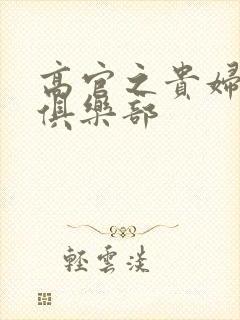 高官之貴婦
俱樂部
輕雲淡